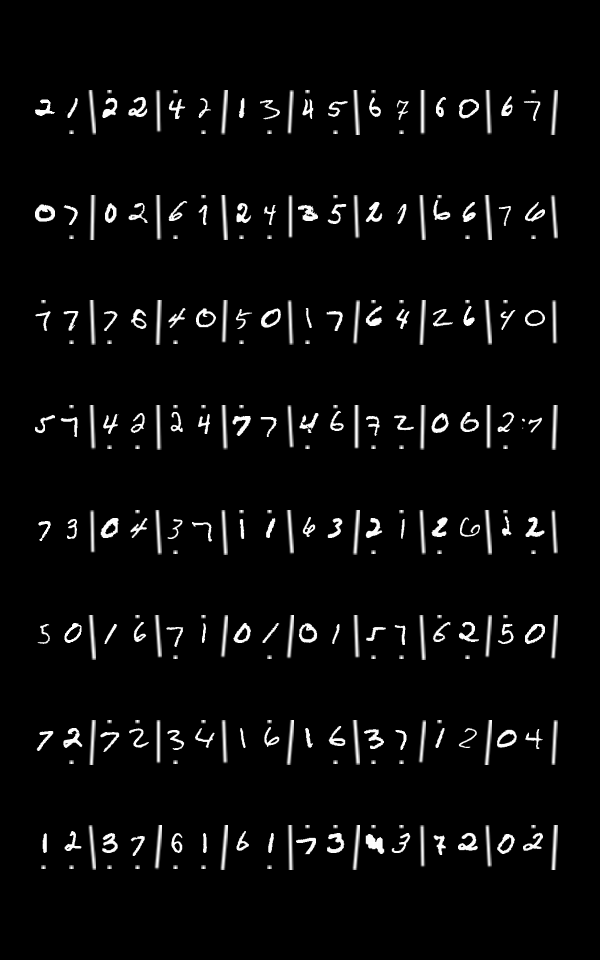 2 1̣ | 2̇ 2 | 4̇ 2̣ | 1 3̣ | 4̇ 5̣ | 6̇ 7̣ | 6 0 | 6 7̇ |
0 7̣ | 0 2 | 6̣ 1̇ | 2̣ 4̣ | 3 5̇ | 2 1 | 6̇ 6̣ | 7 6̣ |
7̇ 7̣ | 7̣ 6 | 4̣ 0 | 5̣ 0 | 1̣ 7 | 6̇ 4̇ | 2 6̇ | 4̇ 0 |
5 7̇ | 4̣ 2̣ | 2̇ 4̇ | 7̣ 7 | 4̣ 6̇ | 7̣ 2̣ | 0 6 | 2̣ 7̇ |
7 3 | 0 4̇ | 3̣ 7 | 1̇ 1̇ | 6 3 | 2̣ 1̣ | 2 6 | 2̇ 2̣ |
5 0 | 1 6̇ | 7̣ 1̇ | 0 1̣ | 0 1 | 5̣ 7̣ | 6̇ 2̣ | 5̇ 0 |
7 2̣ | 7̇ 2 | 3̣ 4̇ | 1 6̇ | 1 6̣ | 3̣ 7̣ | 1̇ 2 | 0 4 |
1̣ 2̣ | 3 7̣ | 6̣ 1̣ | 6 1̣ | 7̇ 3̇ | 4̇ 3̇ | 7 2 | 0 2̇ |